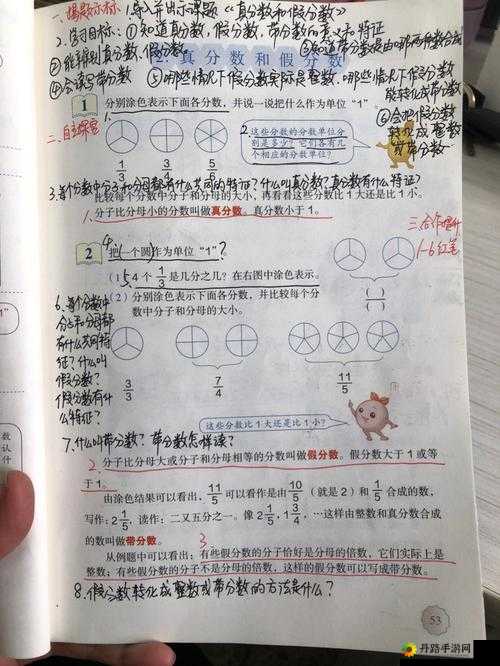 一、揭题示标 1.导入并出示课题《真分数和假分数》
2.学习目标:①知道真分数,假分数,带分数的意义和特征
②能辨别真分数,假分数
③知道带分数是由哪两种数合成
真分数和假分数
④会读写带分数 ⑤哪些情况下假分数实际是整数,哪些情况下假分数
能转化成带分数
⑥会把假分数
转化成整数
或带分数
1 分别涂色表示下面各分数,并说一说把什么作为单位“1”。
二、自主探究
1.
2.这些分数的分数单位分
别是多少?它们各有几
个相应的分数单位?
1/3 3/4 5/6
3.每个分数中分子和分母都有什么共同的特征?什么叫真分数?真分数有什么特征?
比较每个分数中分子和分母的大小,再看看这些分数比1大还是比1小。
1.分子比分母小的分数叫做真分数。真分数小于1。
三、合作提升
1-6红笔
4.
2 把(一个圆)作为单位“1”?
(1)5.4个1/3是几分之几?在右图中涂色表示。
( )
( )
(2)分别涂色表示下面各分数,并比较每个分
数中分子和分母的大小。
6.每个分数中
分子和分母都
有什么共同特
征?什么叫
假分数?
假分数有什
么特征?
3/3 7/4 11/5
这些分数比1大还是比1小?
7.什么叫带分数?带分数怎样读?
2.分子比分母大或分子和分母相等的分数叫做假分数。假分数大于1或等
于1。
由涂色结果可以看出,11/5可以看作是由10/5(就是2)和1/5合成的数,
写作:2 1/5,读作:二又五分之一。像2 1/5,1 3/4,…这样由整数和真分数合成
的数叫做带分数。
3
从例题中可以看出:有些假分数的分子恰好是分母的倍数,它们实际上是
整数;有些假分数的分子不是分母的倍数,这样的假分数可以写成带分数。
8.假分数转化成整数或带分数的方法是什么?
53
数
认
什
丹路手游网